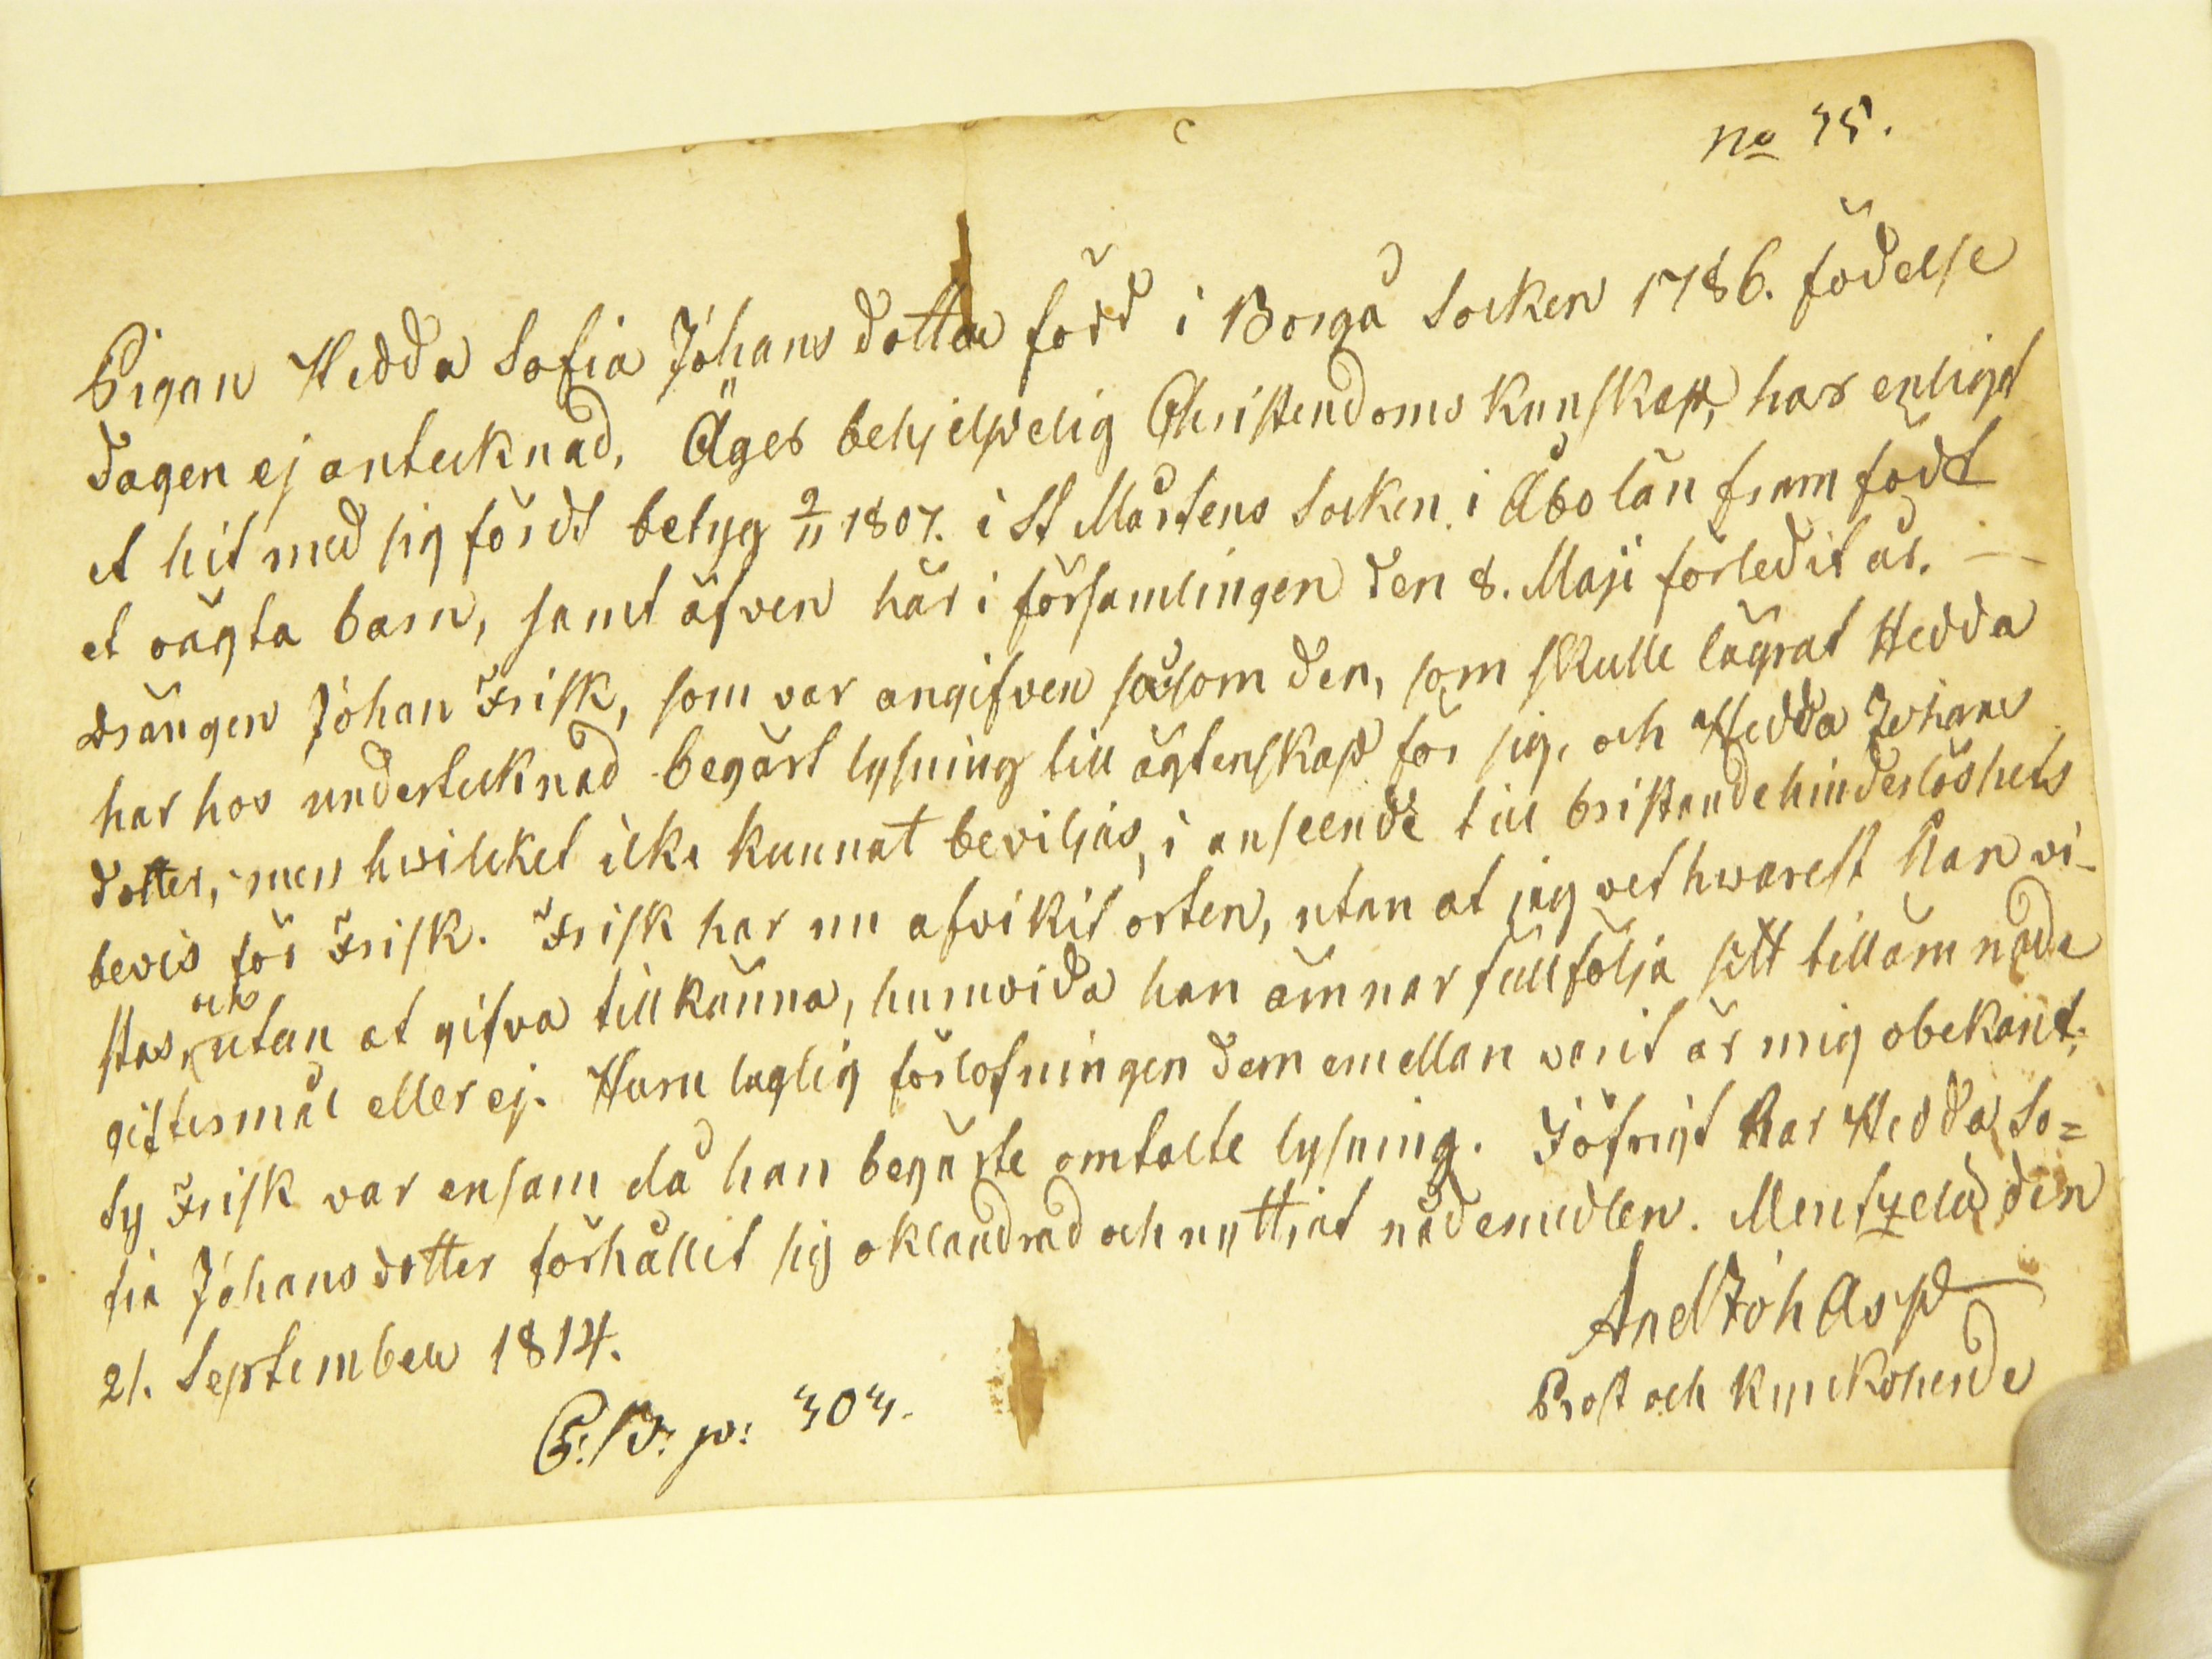 No 35.
Pigan Hedda Sofia Johans dotter född i Borgå Socken 1786. födelse
dagen ej antecknad, Äger behjelpelig Christendoms kunskap, har enligt
et hit med sig fördt betyg 2/11 1807. i St Mårtens Socken i Åbo län framfödt
et oägta barn, samt äfven här i församlingen den 8. Maji förledit år. —
drängen Johan Frisk, som var angifven såsom den, som skulle lägrat Hedda
har hos undertecknad begärt lysning till ägtenskap för sig, och Hedda Johans
dotter, men hwilcket icke kunnat beviljas, i anseende till bristande hinderlöshets
bevis för Frisk. Frisk har nu afvikit orten, utan at jag vet hwarest han vi-
stas, och utan at gifva tillkänna, huruvida han ämnar fullfölja sitt tillämnade
giftesmål eller ej. Huru laglig förlofningen dem emellan varit är mig obekant,
ty Frisk var ensam då han begärte omtalte lysning. Iöfrigt har Hedda So=
fia Johans dotter förhållit sig oklandrad och nyttjat nådemedlen. den
21. September 1814.
And Joh Asp
Prost och Kyrckoherde
p: 303.